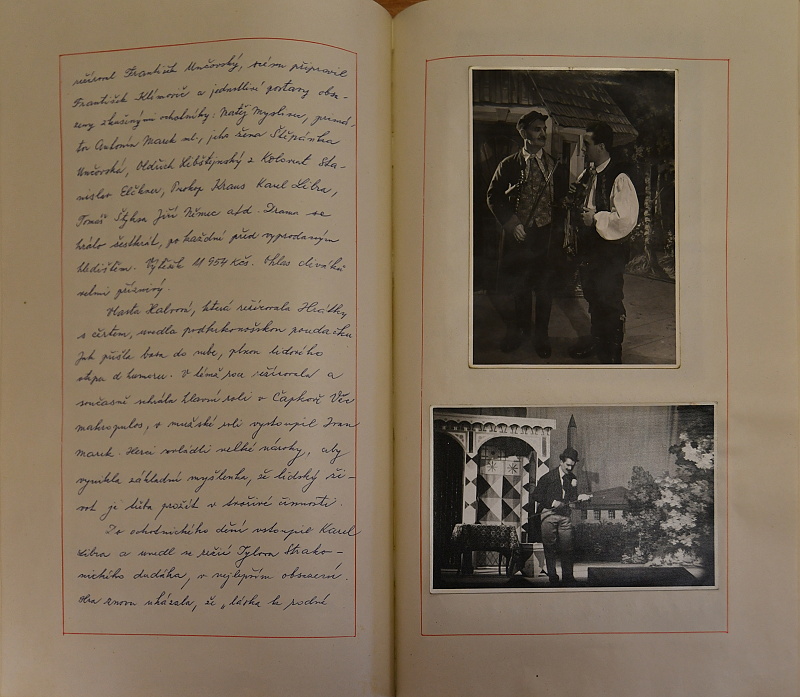 režíroval František Unčovský, scénu připravil
František Klimovič a jednotlivé postavy obsa-
zeny zkušenými ochotníky: Matěj Myslivec, primá-
tor Antonín Marek ml., jeho žena Štěpánka
Unčovská, Oldřich z Kolovrat Sta-
nislav Elčkner, Prokop Kraus Karel Libra,
Tomáš Jiří Němec atd. Drama se
hrálo šestkrát, po každné před vyprodaným
hledištěm. Výtěžek 11 954 Kčs. Ohlas diváků
velmi příznivý.
Vlasta Kalvová, která režírovala Hrátky
s čertem, uvedla podkrkonošskou poudačku
Jak přišla basa do nebe, plnou lidového
vtipu a humoru. V témž roce režírovala a
současně sehrála hlavní roli v Čapkově Věc
makropulos, v mužské roli vystoupil Ivan
Marek. Herci zvládli velké nároky, aby
vynikla základní myšlenka, že lidský ži-
vot je třeba prožít v tvořivé činnosti.
Do ochotnického dění vstoupil Karel
Libra a uvedl ve režii Tylova Strako-
nického dudáka, v nejlepším obsazení.
Hra znovu ukázala, že „láska k rodné